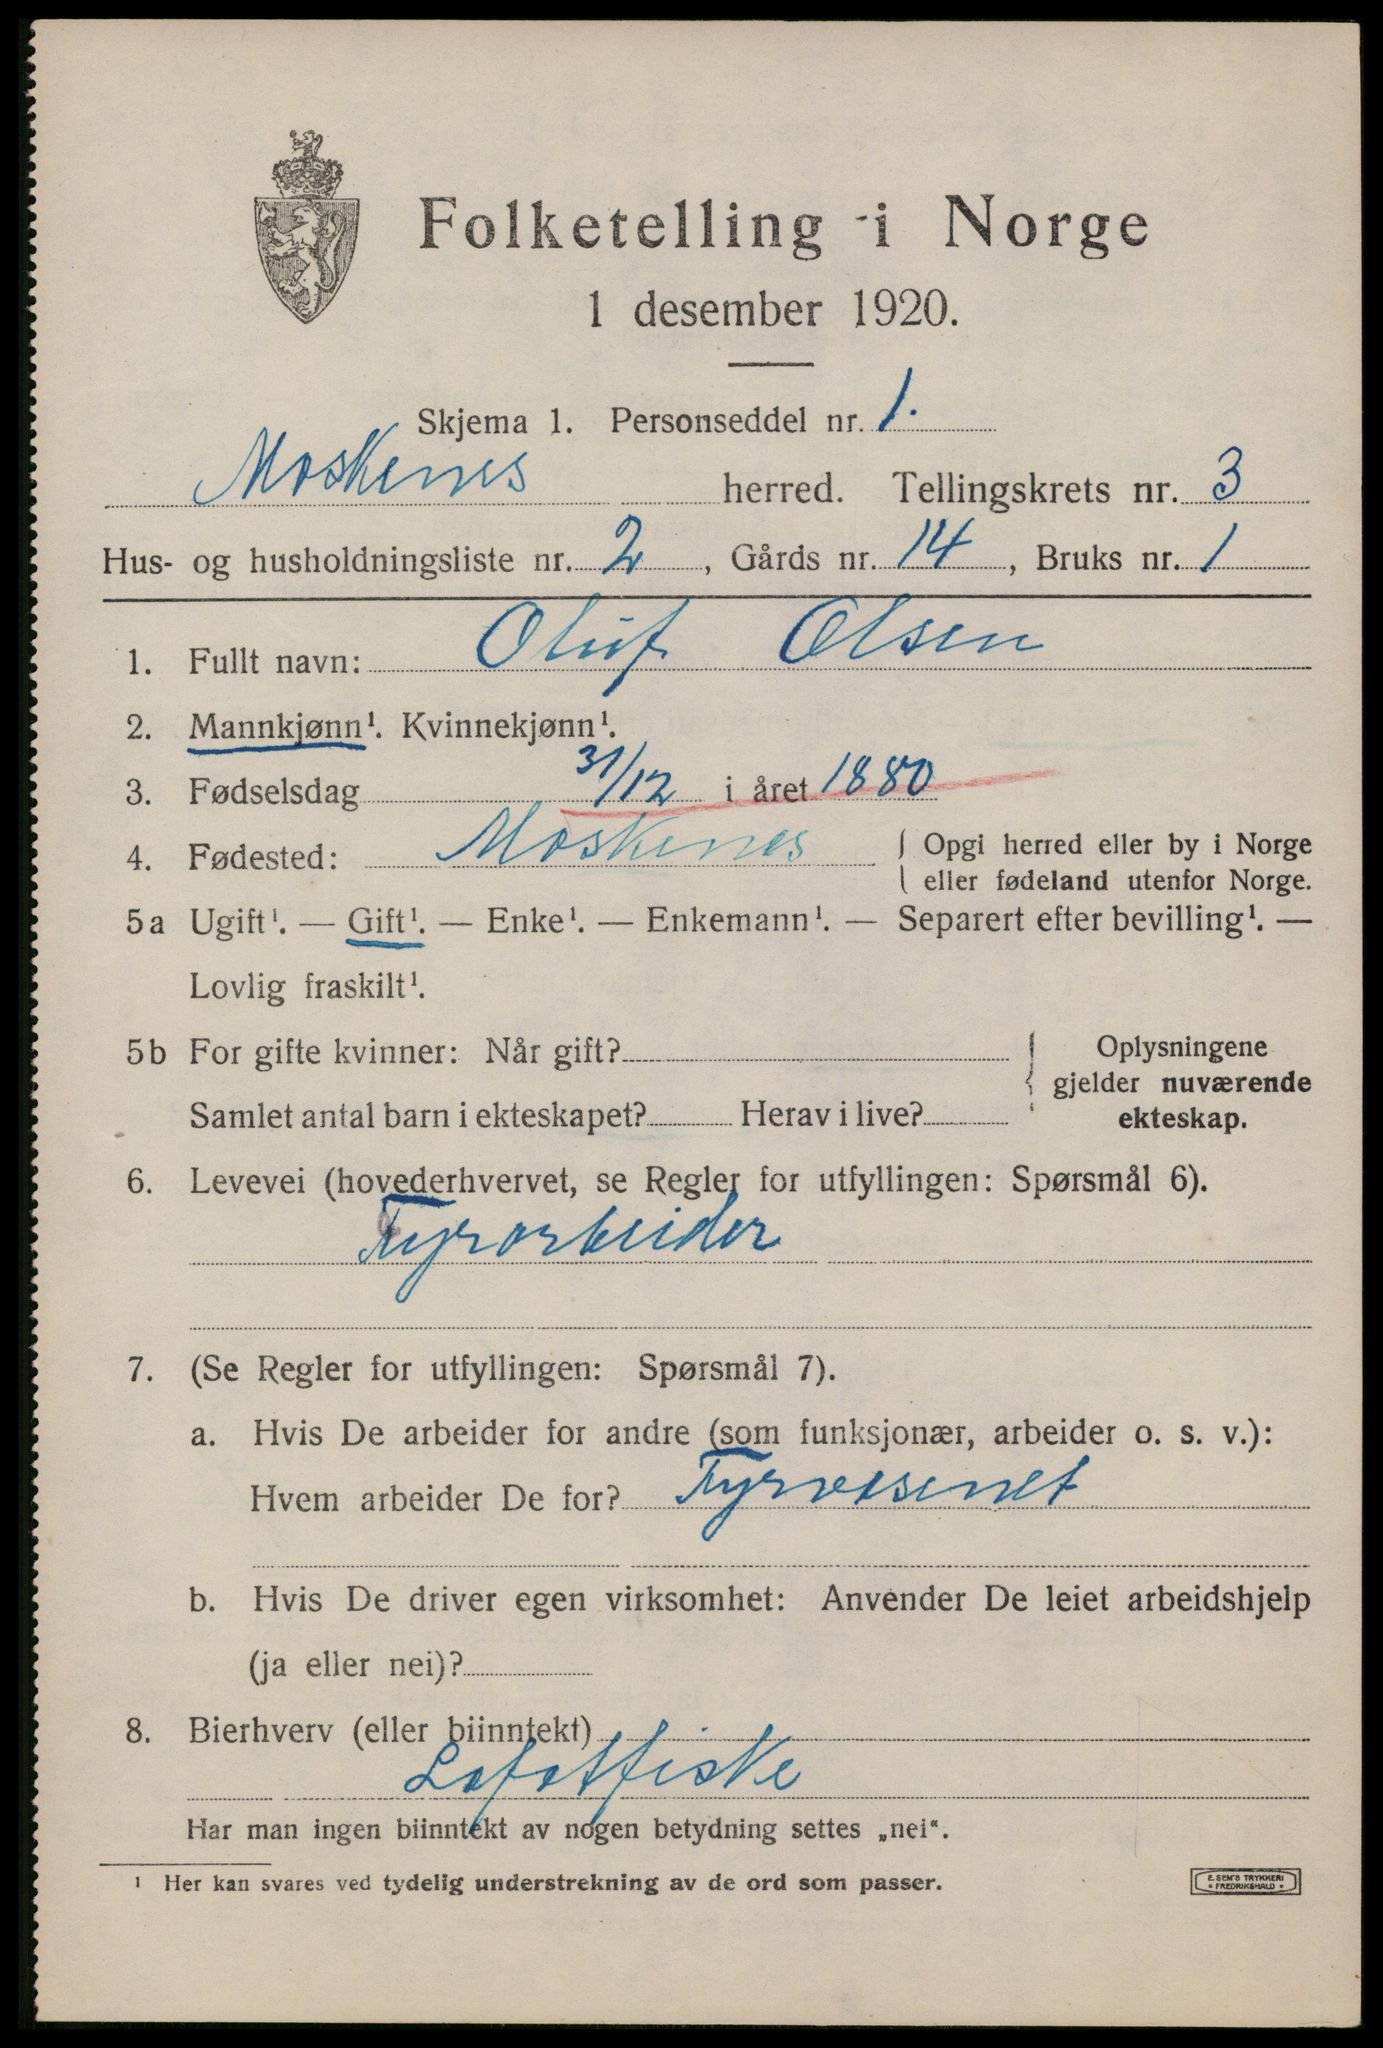 Folketelling i Norge
1 desember 1920.
Skjema 1. Personseddel nr. 1.
Moskenes herred. Tellingskrets nr. 3
Hus- og husholdningsliste nr. 2, Gårds nr. 14, Bruks nr. 1
1. Fullt navn: Oluf Olsen
2. Mannkjønn¹. Kvinnekjønn¹.
3. Fødselsdag 31/12 i året 1880
4. Fødested: Moskenes { Opgi herred eller by i Norge
eller fødeland utenfor Norge.
5a Ugift¹. — Gift¹. — Enke¹. — Enkemann¹. — Separert efter bevilling¹. —
Lovlig fraskilt¹.
5b For gifte kvinner: Når gift? { Oplysningene
gjelder nuværende
Samlet antal barn i ekteskapet? Herav i live? ekteskap.
6. Levevei (hovederhvervet, se Regler for utfyllingen: Spørsmål 6).
Fyrarbeider
7. (Se Regler for utfyllingen: Spørsmål 7).
a. Hvis De arbeider for andre (som funksjonær, arbeider o. s. v.):
Hvem arbeider De for? Fyrvesenet
b. Hvis De driver egen virksomhet: Anvender De leiet arbeidshjelp
(ja eller nei)?
8. Bierhverv (eller biinntekt)
Lofotfiske
Har man ingen biinntekt av nogen betydning settes „nei“.
¹ Her kan svares ved tydelig understrekning av de ord som passer.
E. SEM'S TRYKKERI
• FREDRIKSHALD •